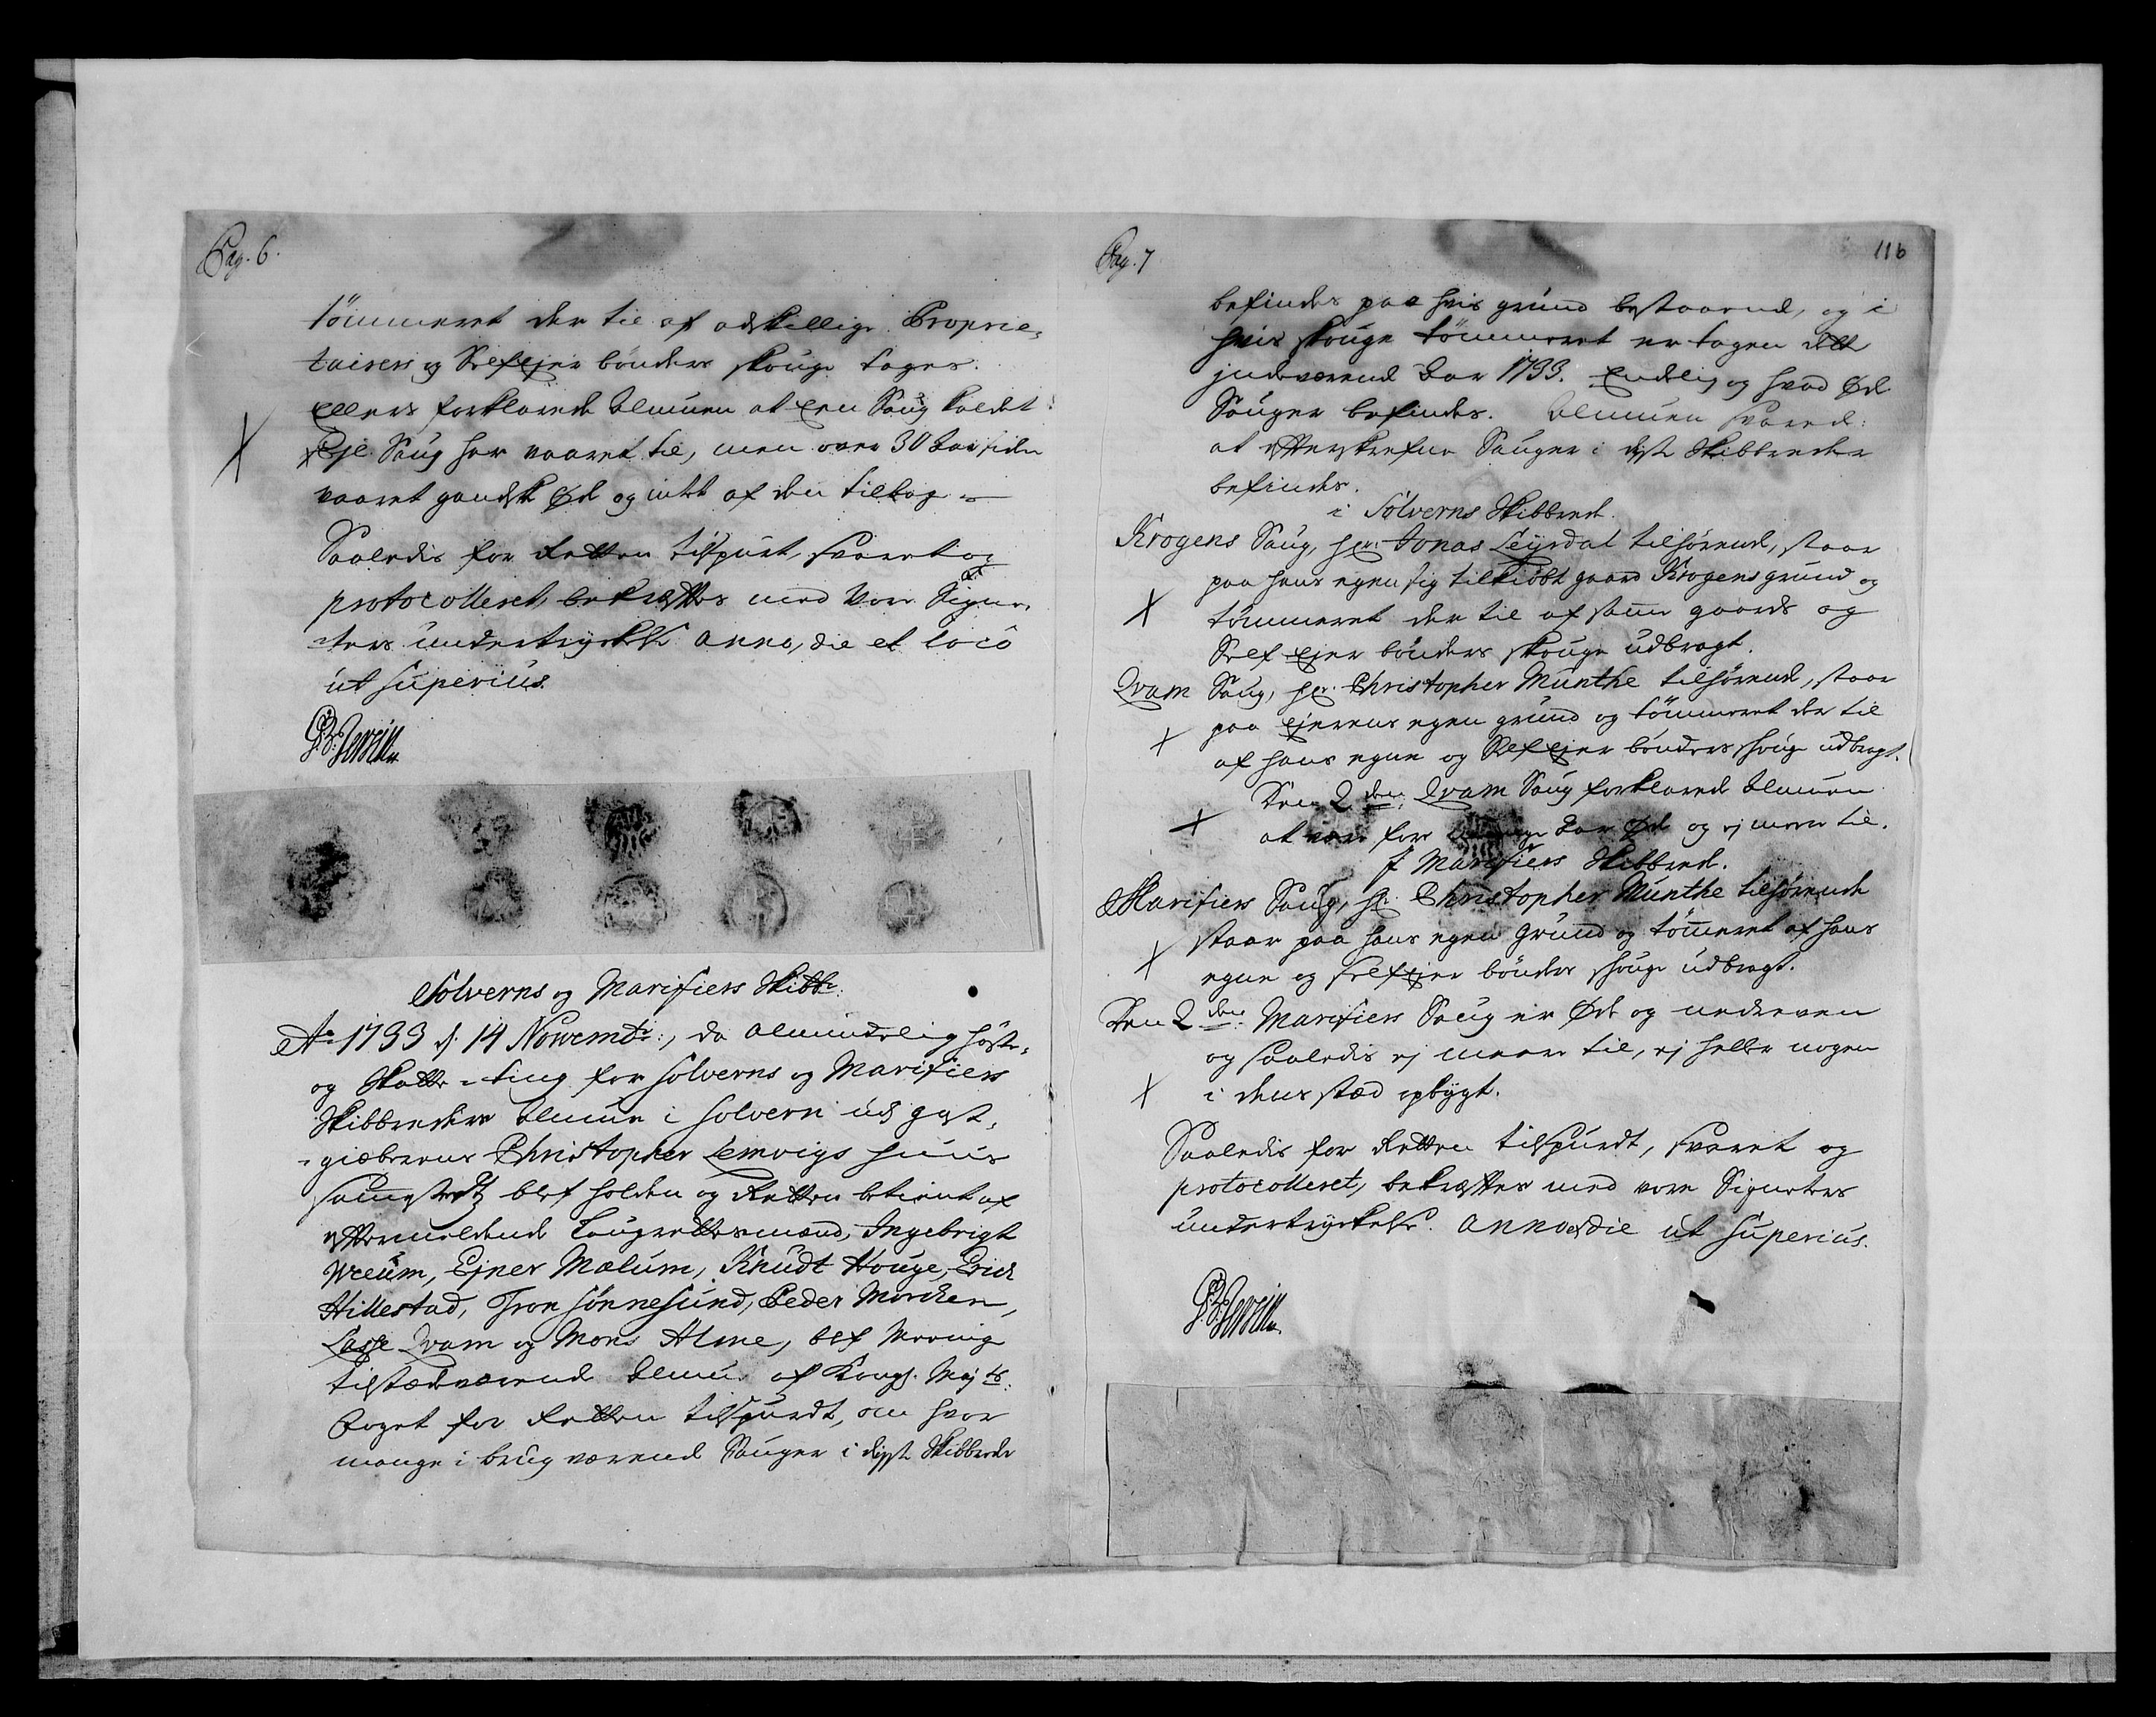 Pag. 6.
tömmeret der til af adskillige Proprie-
tairers og Selfejer bönders skouge tages.
Ellers forklarede Almuen at Een Saug kaldet
Eje Saug har vaaret til, men over 30 Aar siden
vaaret gandske Øde og intet af den tilbage
Saaledis for Retten tilspurt, svaret og
protocolleret, bekræfftes med Vore Signe-
ters undertrychelse anno, die et loco
ut superius.
Sölverns og Marifiers Skibbr:
Ao 1733 d. 14 Novembr:, da almindelig höste-
og Skatte-ting for Solverns og Marifiers
Skibbreders Almue i Solvern ud gæst-
giæberens Christopher Lemvigs huus
sammestedtz blef holden og Retten betient af
effermeldende Laugrettesmænd, Ingebrigt
Wreum, Ejner Mælum, Knudt Houge, Erich
Hillestad, Tron Sönnesund, Peder Morchen,
Lasse Qvam og Mons Alme, blef Menige
tilstædeværende Almue af Kongl. Majts:
Foget for Retten tilspurdt, om hvor
mange i brug værende Sauger i disse Skibbreder
Pag. 7
116
befindes paa hvis grund bestaaende, og i
hvis skouge tömmeret er tagen dette
indeværende Aar 1733. Endelig og hvad Øde
Sauger befindes. Almuen svarede:
at effterskrefne Sauger i disse Skibbreder
befindes.
i Solverns Skibbrede.
Krogens Saug, hr: Jonas Leyrdal tilhörende, staar
paa hans egen sig tilkiöbt gaard Krogens grund og
tömmeret der til af samme gaards og
Self Ejer bönders skouge udbragt.
Qvam Saug, hr: Christopher Munthe tilhörende, staar
paa Ejerens egen grund og tömmeret der til
af hans egne og Self Ejer bönders skouge udbragt.
Den 2den Qvam Saug forklarede Almuen
at være for mange Aar Øde og ej meere til.
I Marifiers Skibbrede.
Marifiers Saug, hr: Christopher Munthe tilhörende
staar paa hans egen Grund og tömmeret af hans
egne og Selfejer bönders skouge udbragt.
Den 2den: Marifiers Saug er Øde og nedreven
og saaledis ej meere til, ej heller nogen
i dens stæd opbygt.
Saaledis for Retten tilspurdt, svaret og
protocolleret, bekræfftes med vore Signeters
undertrychelse. Anno & die ut superius.